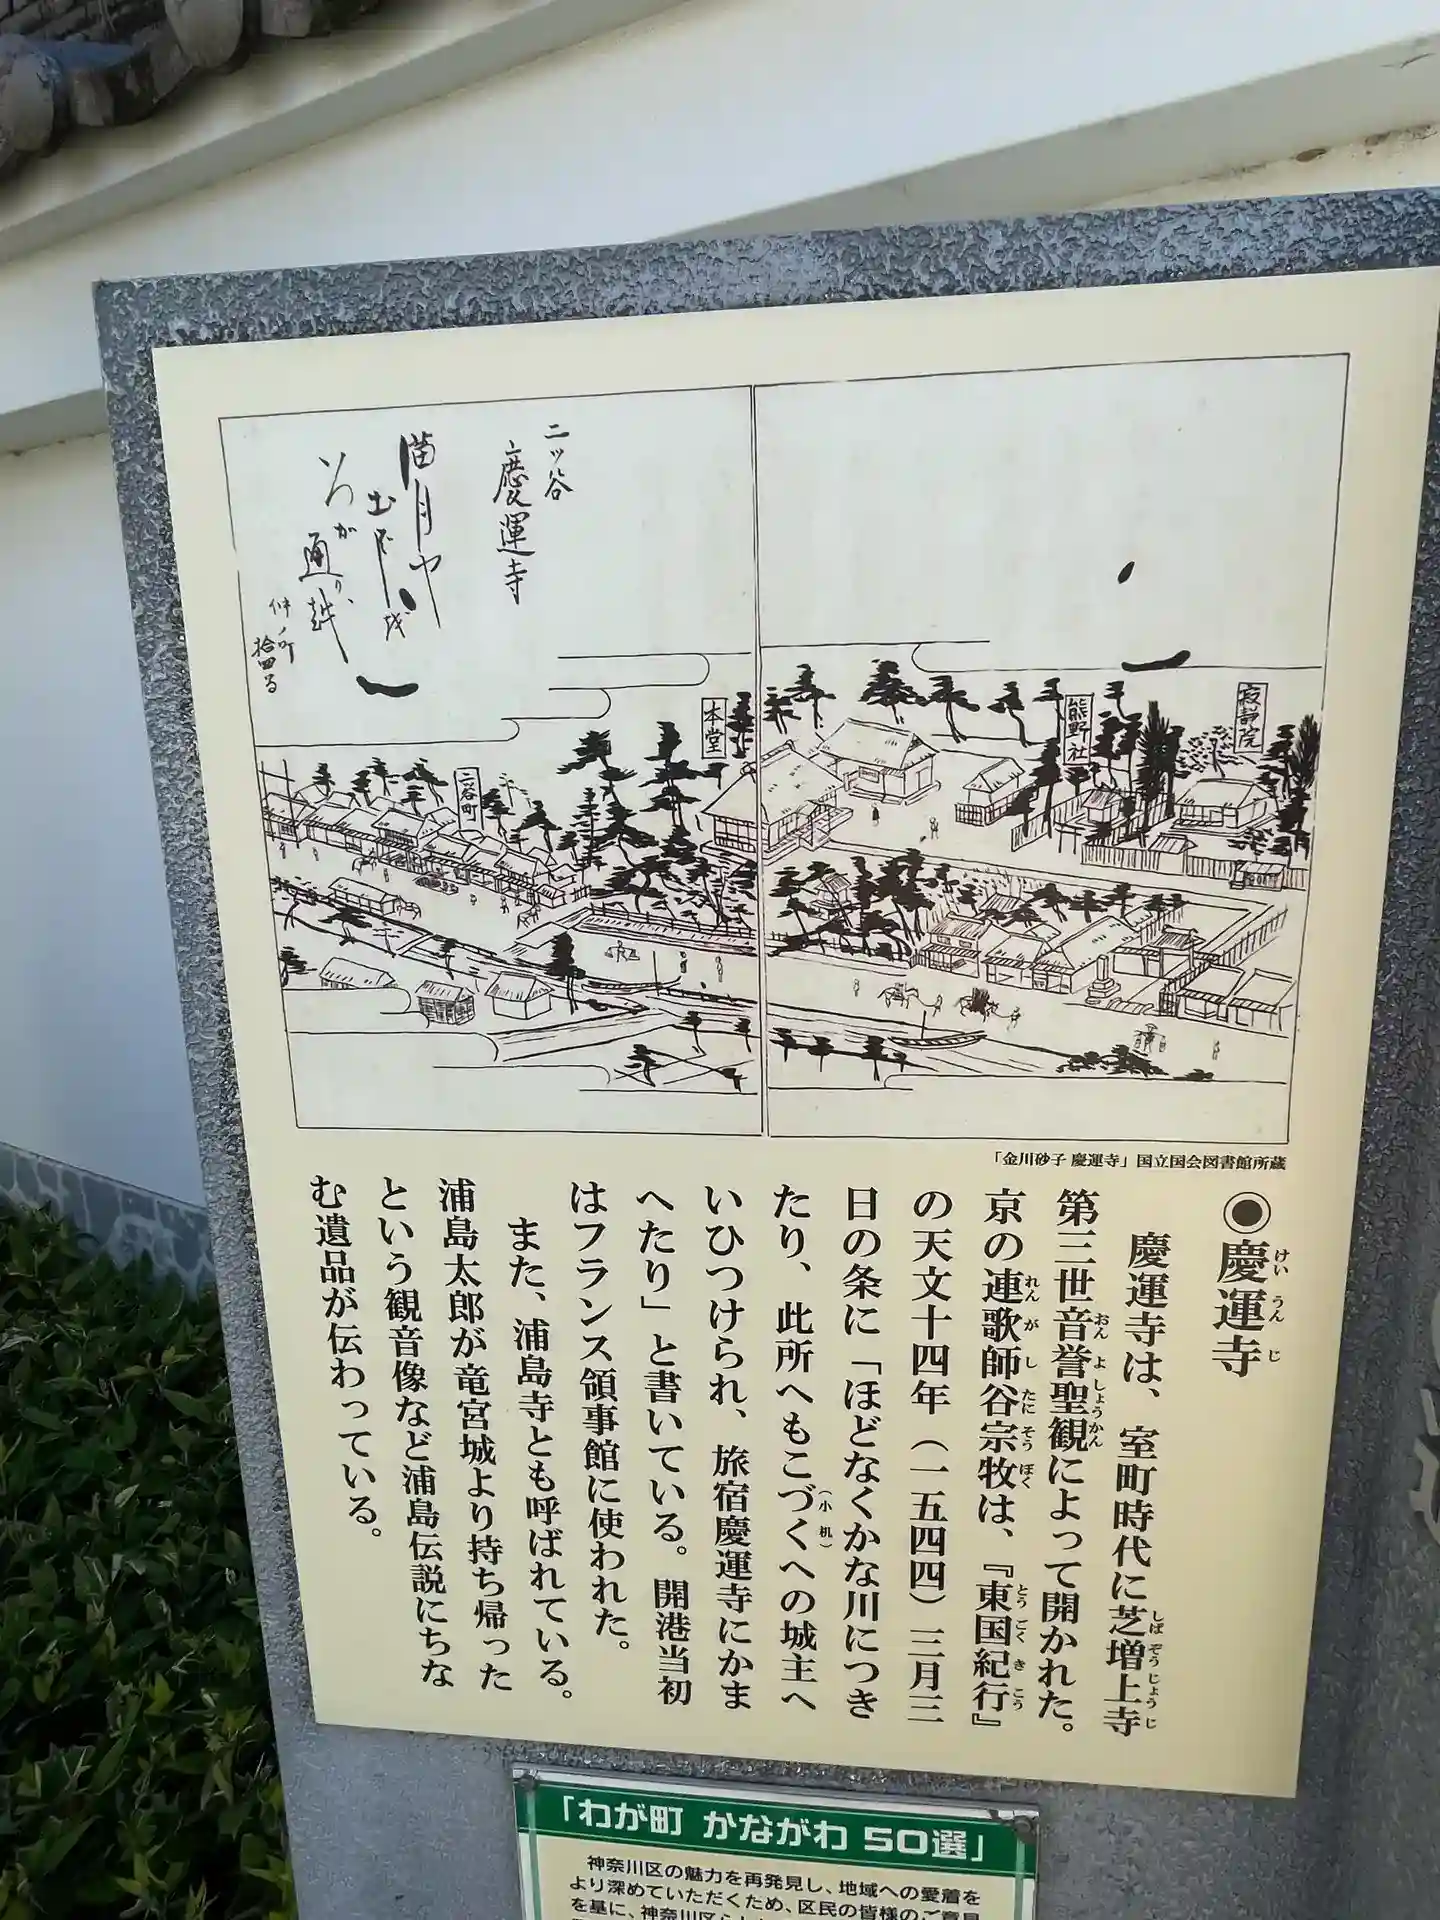 二ッ谷
慶運寺
満月や
通り越
仲ノ町
本堂
二ッ谷町
熊野社
寂静院
「金川砂子 慶運寺」国立国会図書館所蔵
◉慶運寺
けい うん じ
慶運寺は、室町時代に芝増上寺
しば ぞう じょう じ
第三世音誉聖観によって開かれた。
おん よ しょう かん
京の連歌師谷宗牧は、『東国紀行』
れん が し たに そう ぼく
とう ごく き こう
の天文十四年（一五四四）三月三
日の条に「ほどなくかな川につき
たり、此所へもこづくへの城主へ
（小机）
いひつけられ、旅宿慶運寺にかま
へたり」と書いている。開港当初
はフランス領事館に使われた。
また、浦島寺とも呼ばれている。
浦島太郎が竜宮城より持ち帰った
という観音像など浦島伝説にちな
む遺品が伝わっている。
「わが町 かながわ 50選」
神奈川区の魅力を再発見し、地域への愛着を
より深めていただくため、区民の皆様のご意見
を基に、神奈川区らし